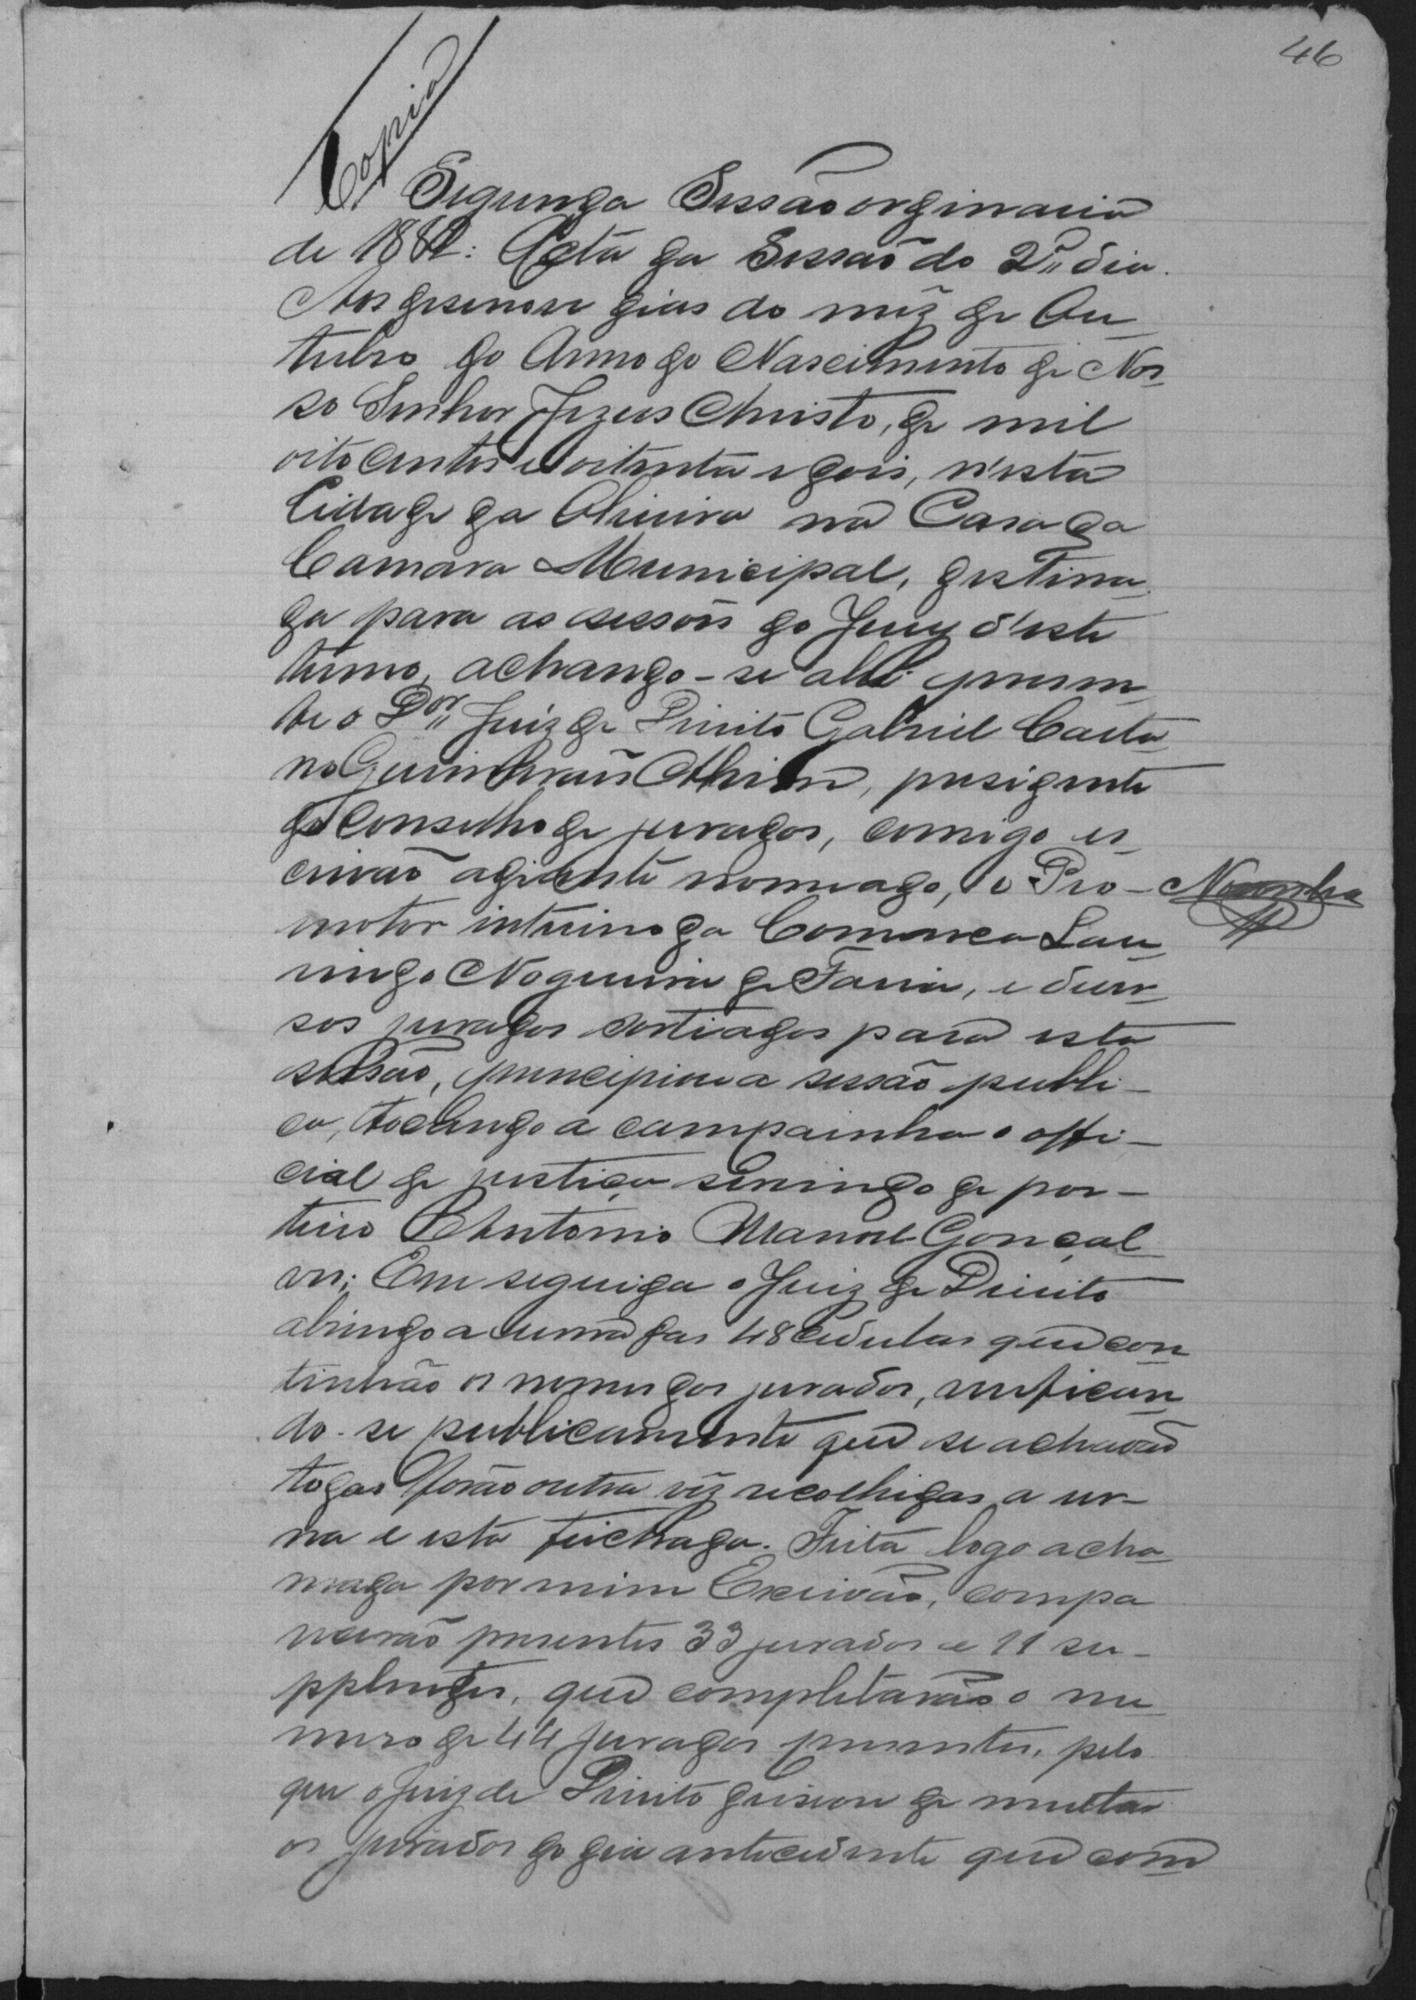 46
Copia
Segunda Sessão ordinaria
de 1882: Acta da Sessão do 2º dia.
Aos desenove dias do mêz de Ou
tubro do Anno do Nascimento de Nos
so Senhor Jezus Christo, de mil
oito centos e oitenta e dois, n'esta
Cidade da Oliveira na Casa da
Camara Municipal, destina
da para as sessões do Jury d'este
termo, achando-se alli presen
te o Dor Juiz de Direito Gabriel Caeta
no Guimarães, presidente
do Conselho de jurados, comigo es
crivão adiante nomeado, o Pro-
motor interino da Comarca Lau
rindo Nogueira de Faria, e diver
sos jurados sorteados para esta
sessão, principiou a sessão publi-
ca, tocando a campainha o offi-
cial de justiça servindo de por-
teiro Antonio Manoel Gonçal
ves; Em seguida o Juiz de Direito
abrindo a urna das 48 cedulas que con
tinhão os nomes dos jurados, verifican
do-se publicamente que se achavão
todas forão outra vêz recolhidas a ur-
na e esta feichada. Feita logo a cha
mada por mim Escrivão, compa
recerão presentes 33 jurados e 11 su-
pplentes, que completarão o nu
mero de 44 jurados presentes, pelo
que o Juiz de Direito deixou de multar
os jurados do dia antecedente que com